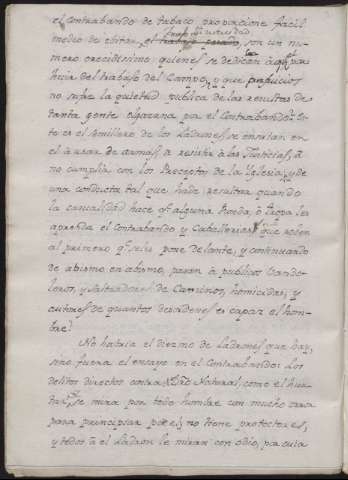 el Contrabando de tabaco proporcione facil
medio de evitar, el trabajo pesado, son un nu-
mero crecidissimo quienes se dedican à el por
huir del trabajo del Campo, y que perjuicios
no sufre la quietud publica de las resultas de
tanta gente olgazana por el Contrabando: Es-
to es el Semillero de los Ladrones, se ensaian en
el à usar de armas, à resistir à las Justicias, à
no cumplir con los Preceptos de la Yglesia, y de
una conducta tal que hade resultar quando
la casualidad hace qe. alguna Ronda, ô tropa les
aprenda el Contrabando y Caballerias, que roben
al primero qe. se les pone delante, y continuando
de abismo en abismo, pasan à publicos Vando-
leros, y Salteadores de Caminos, homicidas, y
autores de quantos desordenes es capaz el hom-
bre.
No habria el diezmo de Ladrones que hay,
sino fuera el ensayo en el Contrabando: Los
delitos directos contra dro. Natural, como el hur-
tar, se mira por todo hombre con mucho orror
para principiar por el, no tiene protectores,
y todos à el Ladron le miran con odio, pa cuia